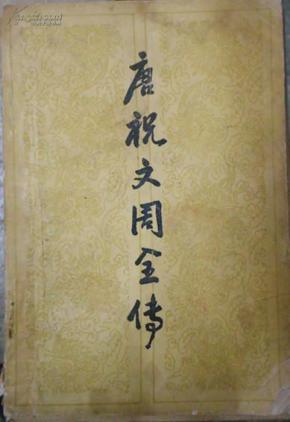 唐祝文周全传